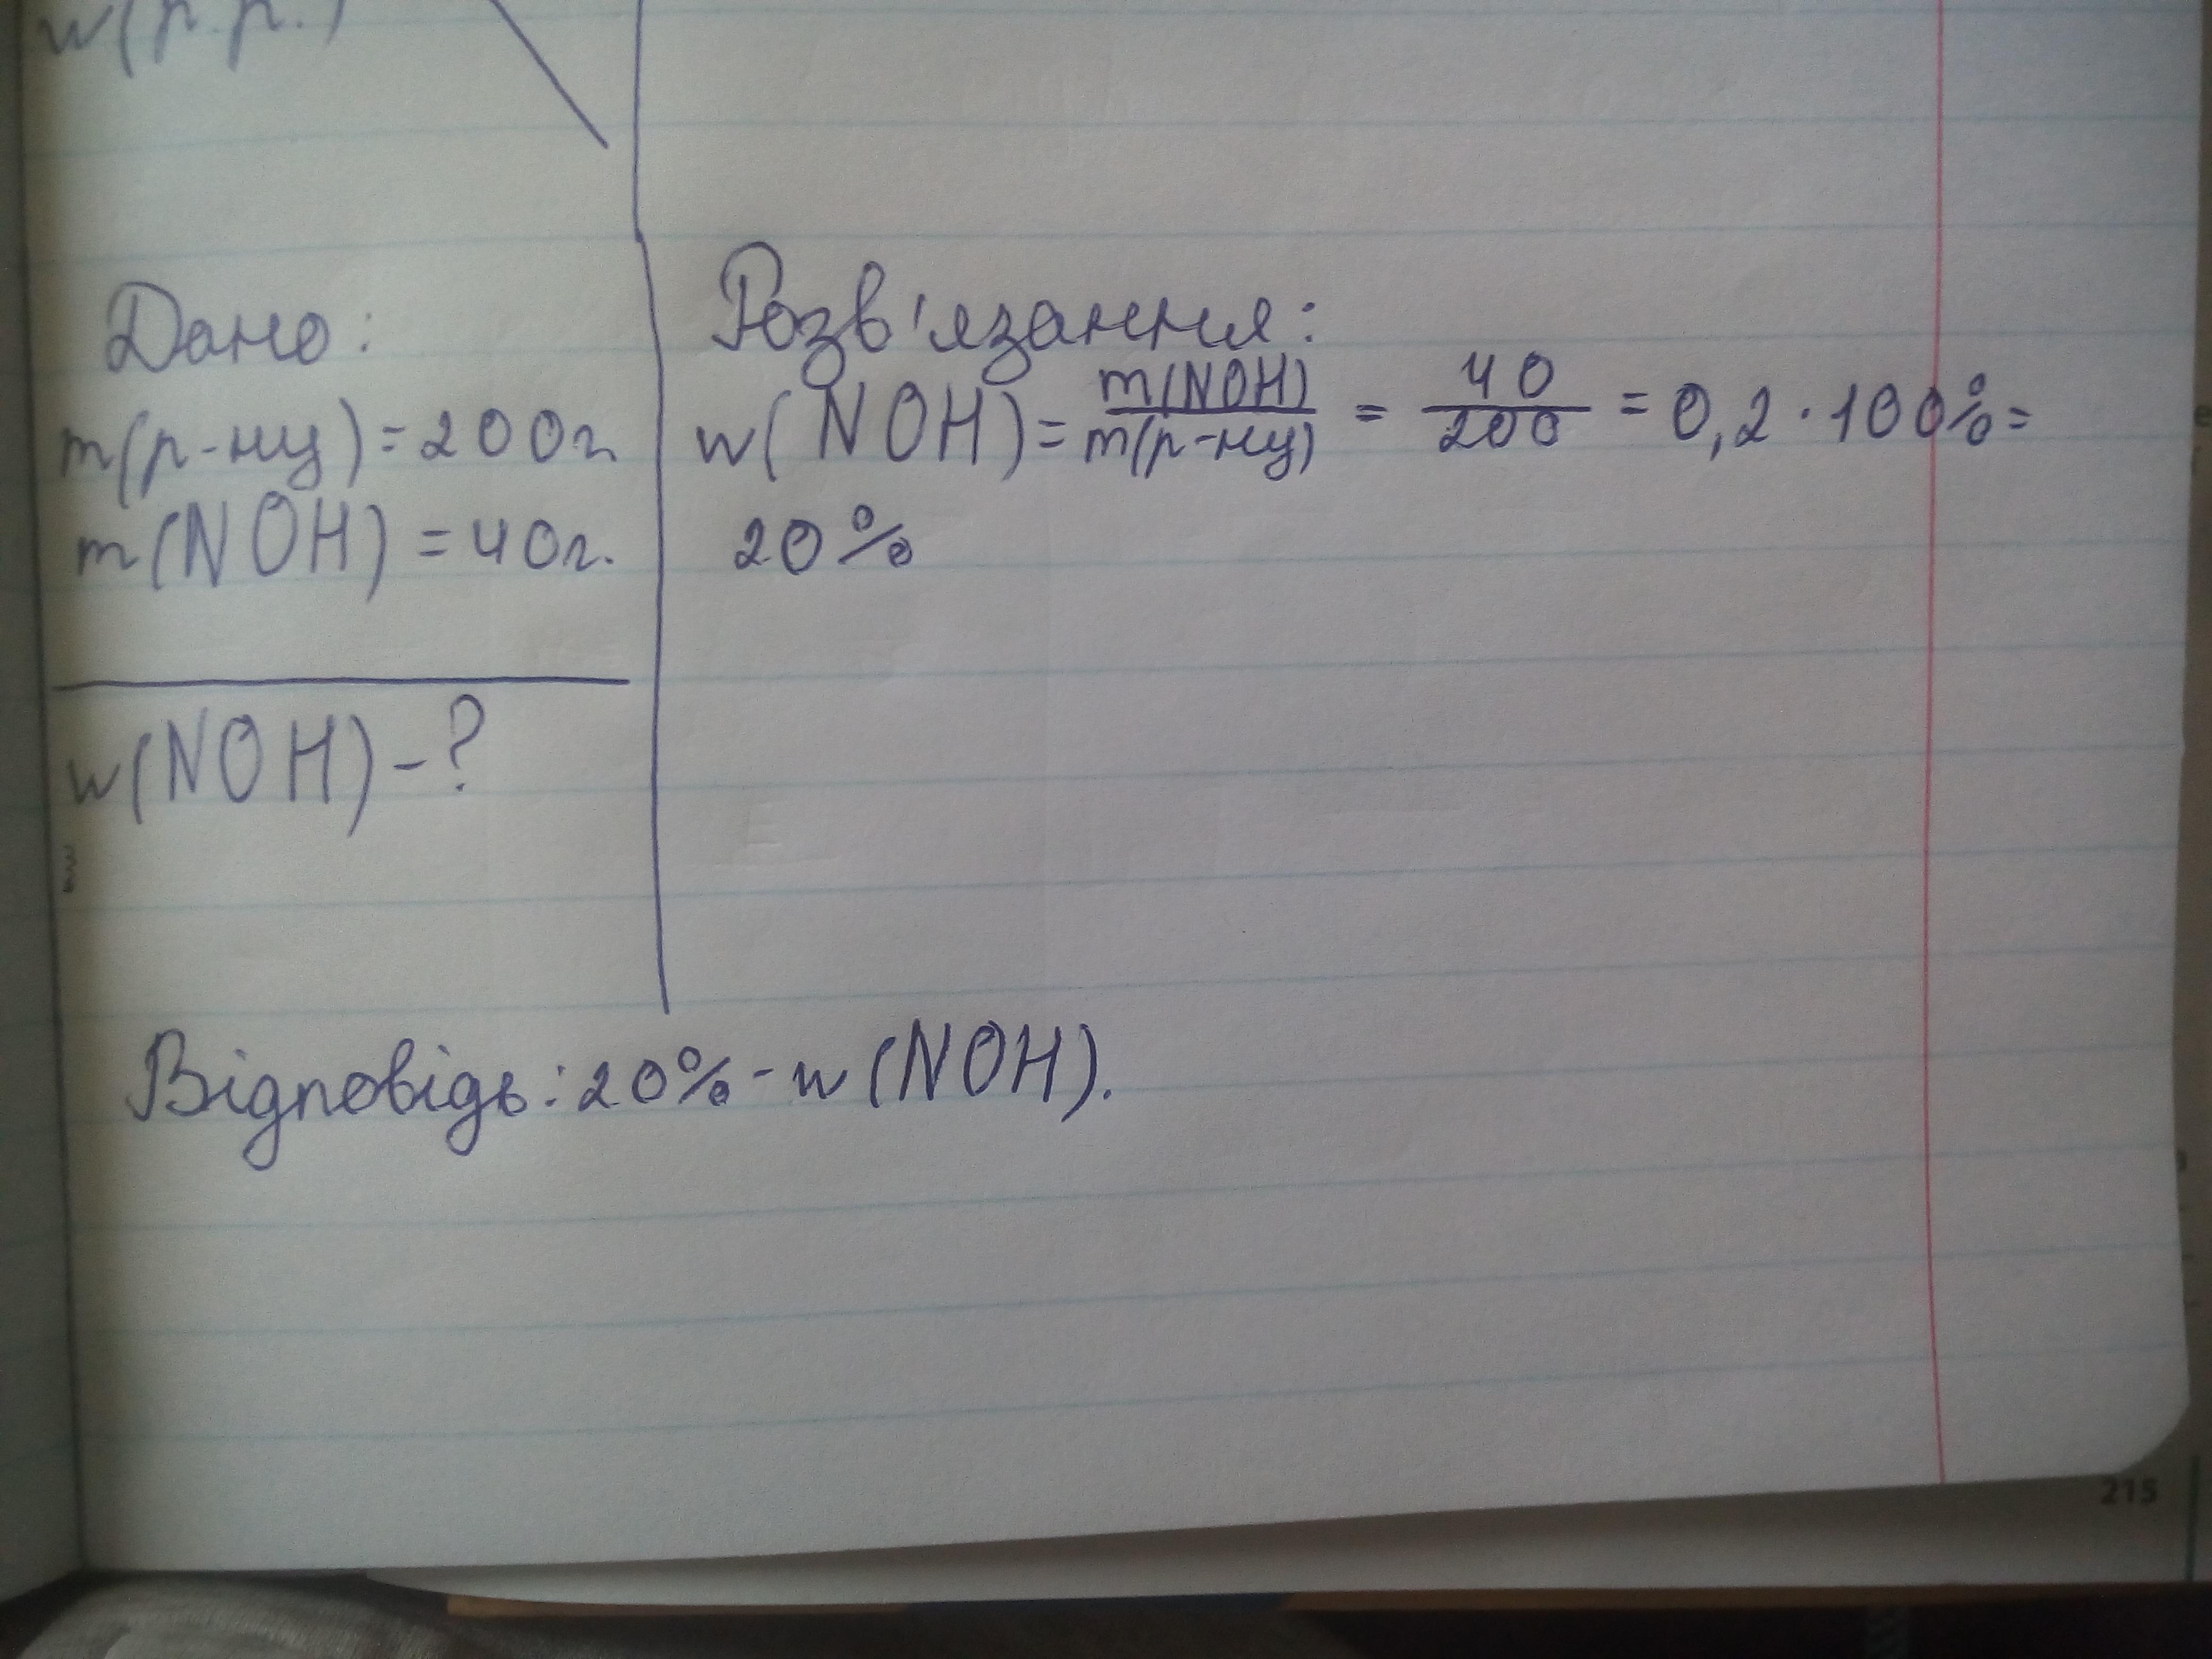 w(р.р.)
Дано:
m(р-ну)=200г.
m(NOH)=40г.
w(NOH)-?
Розв'язання:
w(NOH)=m(NOH)/m(р-ну)=40/200=0,2·100%=
20%
Відповідь:20%-w(NOH).
215